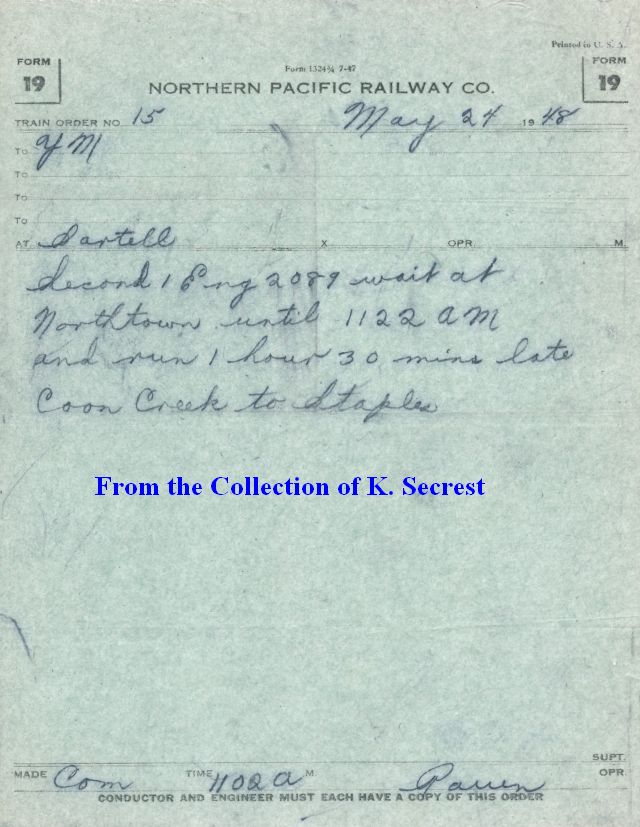 Printed in U. S. A.
FORM 19
Form 1324¾ 7-47
FORM 19
NORTHERN PACIFIC RAILWAY CO.
TRAIN ORDER NO. 15 May 24 1948
To YM
To
To
To
AT Sartell X OPR. M.
Second 1 Eng 2089 wait at
Northtown until 1122 AM
and run 1 hour 30 mins late
Coon Creek to Staples
From the Collection of K. Secrest
SUPT.
MADE Com TIME 1102 A M OPR.
CONDUCTOR AND ENGINEER MUST EACH HAVE A COPY OF THIS ORDER